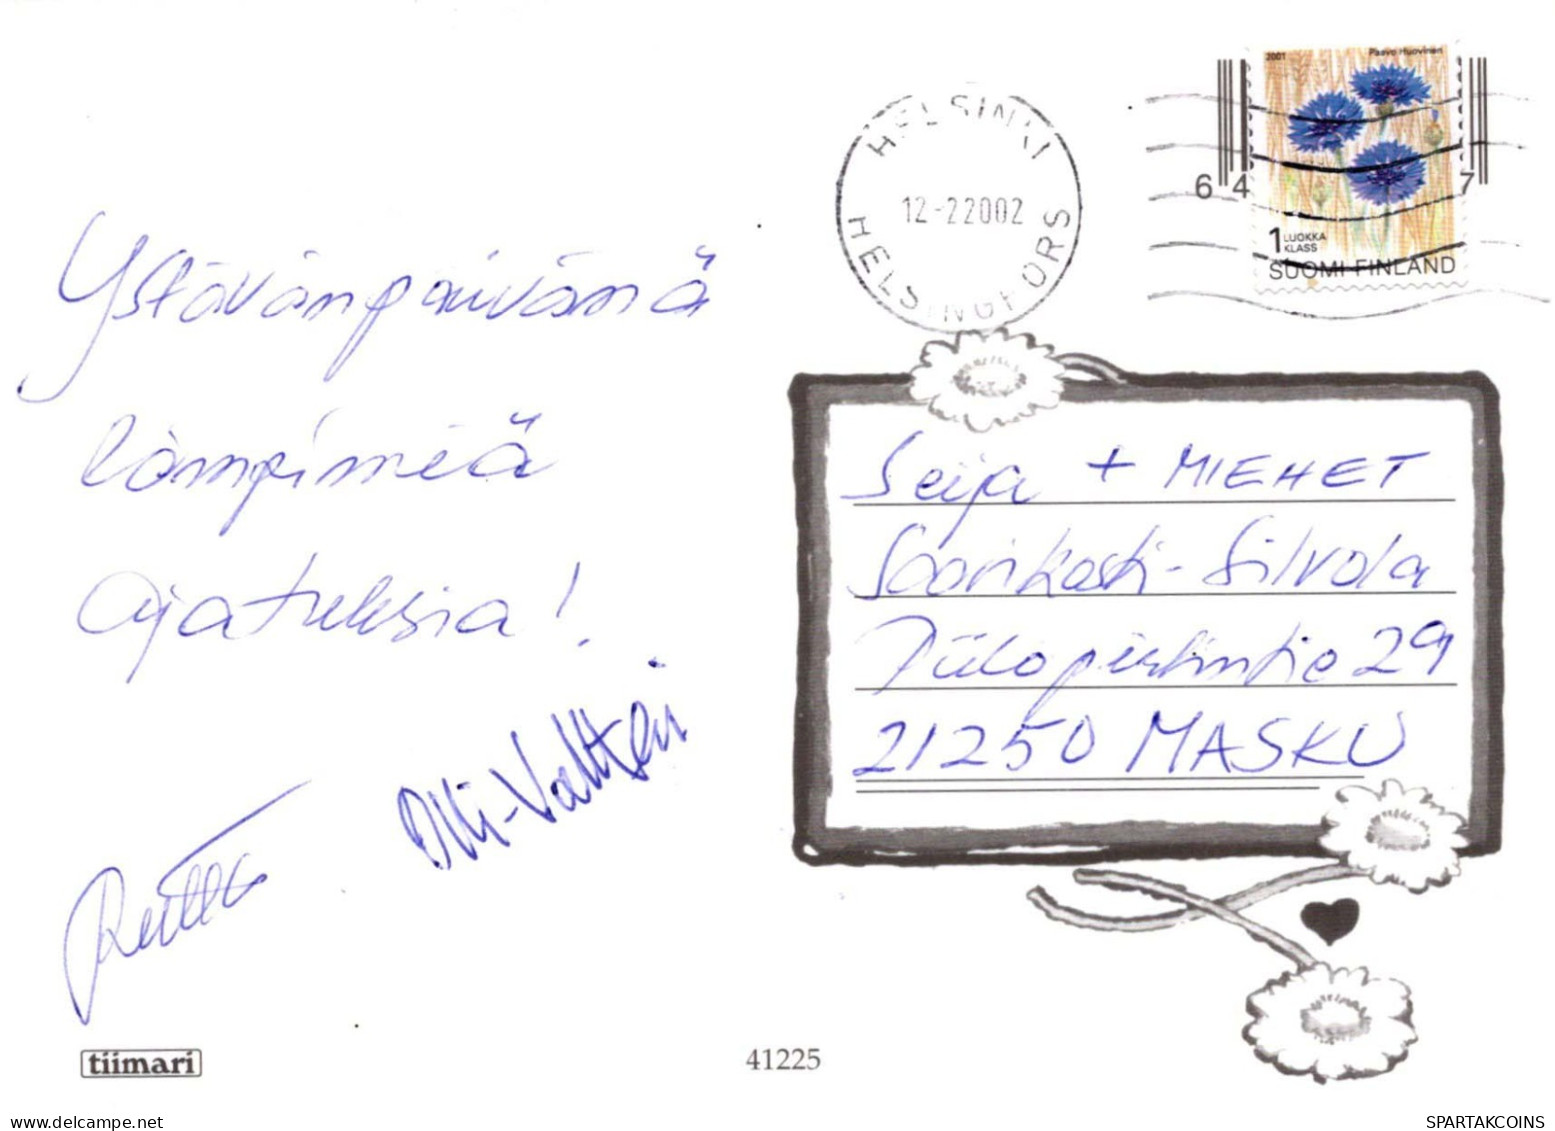 Ystävänpäivänä
lämpimiä
ajatuksia!
Olli-Valtteri
HELSINKI
12-2 2002
HELSINGFORS
2001 Paavo Huovinen
64 7
1 LUOKKA
KLASS
SUOMI FINLAND
Seija + MIEHET
Saarikoski-Silvola
29
21250 MASKU
tiimari
41225
www.delcampe.net
SPARTAKCOINS